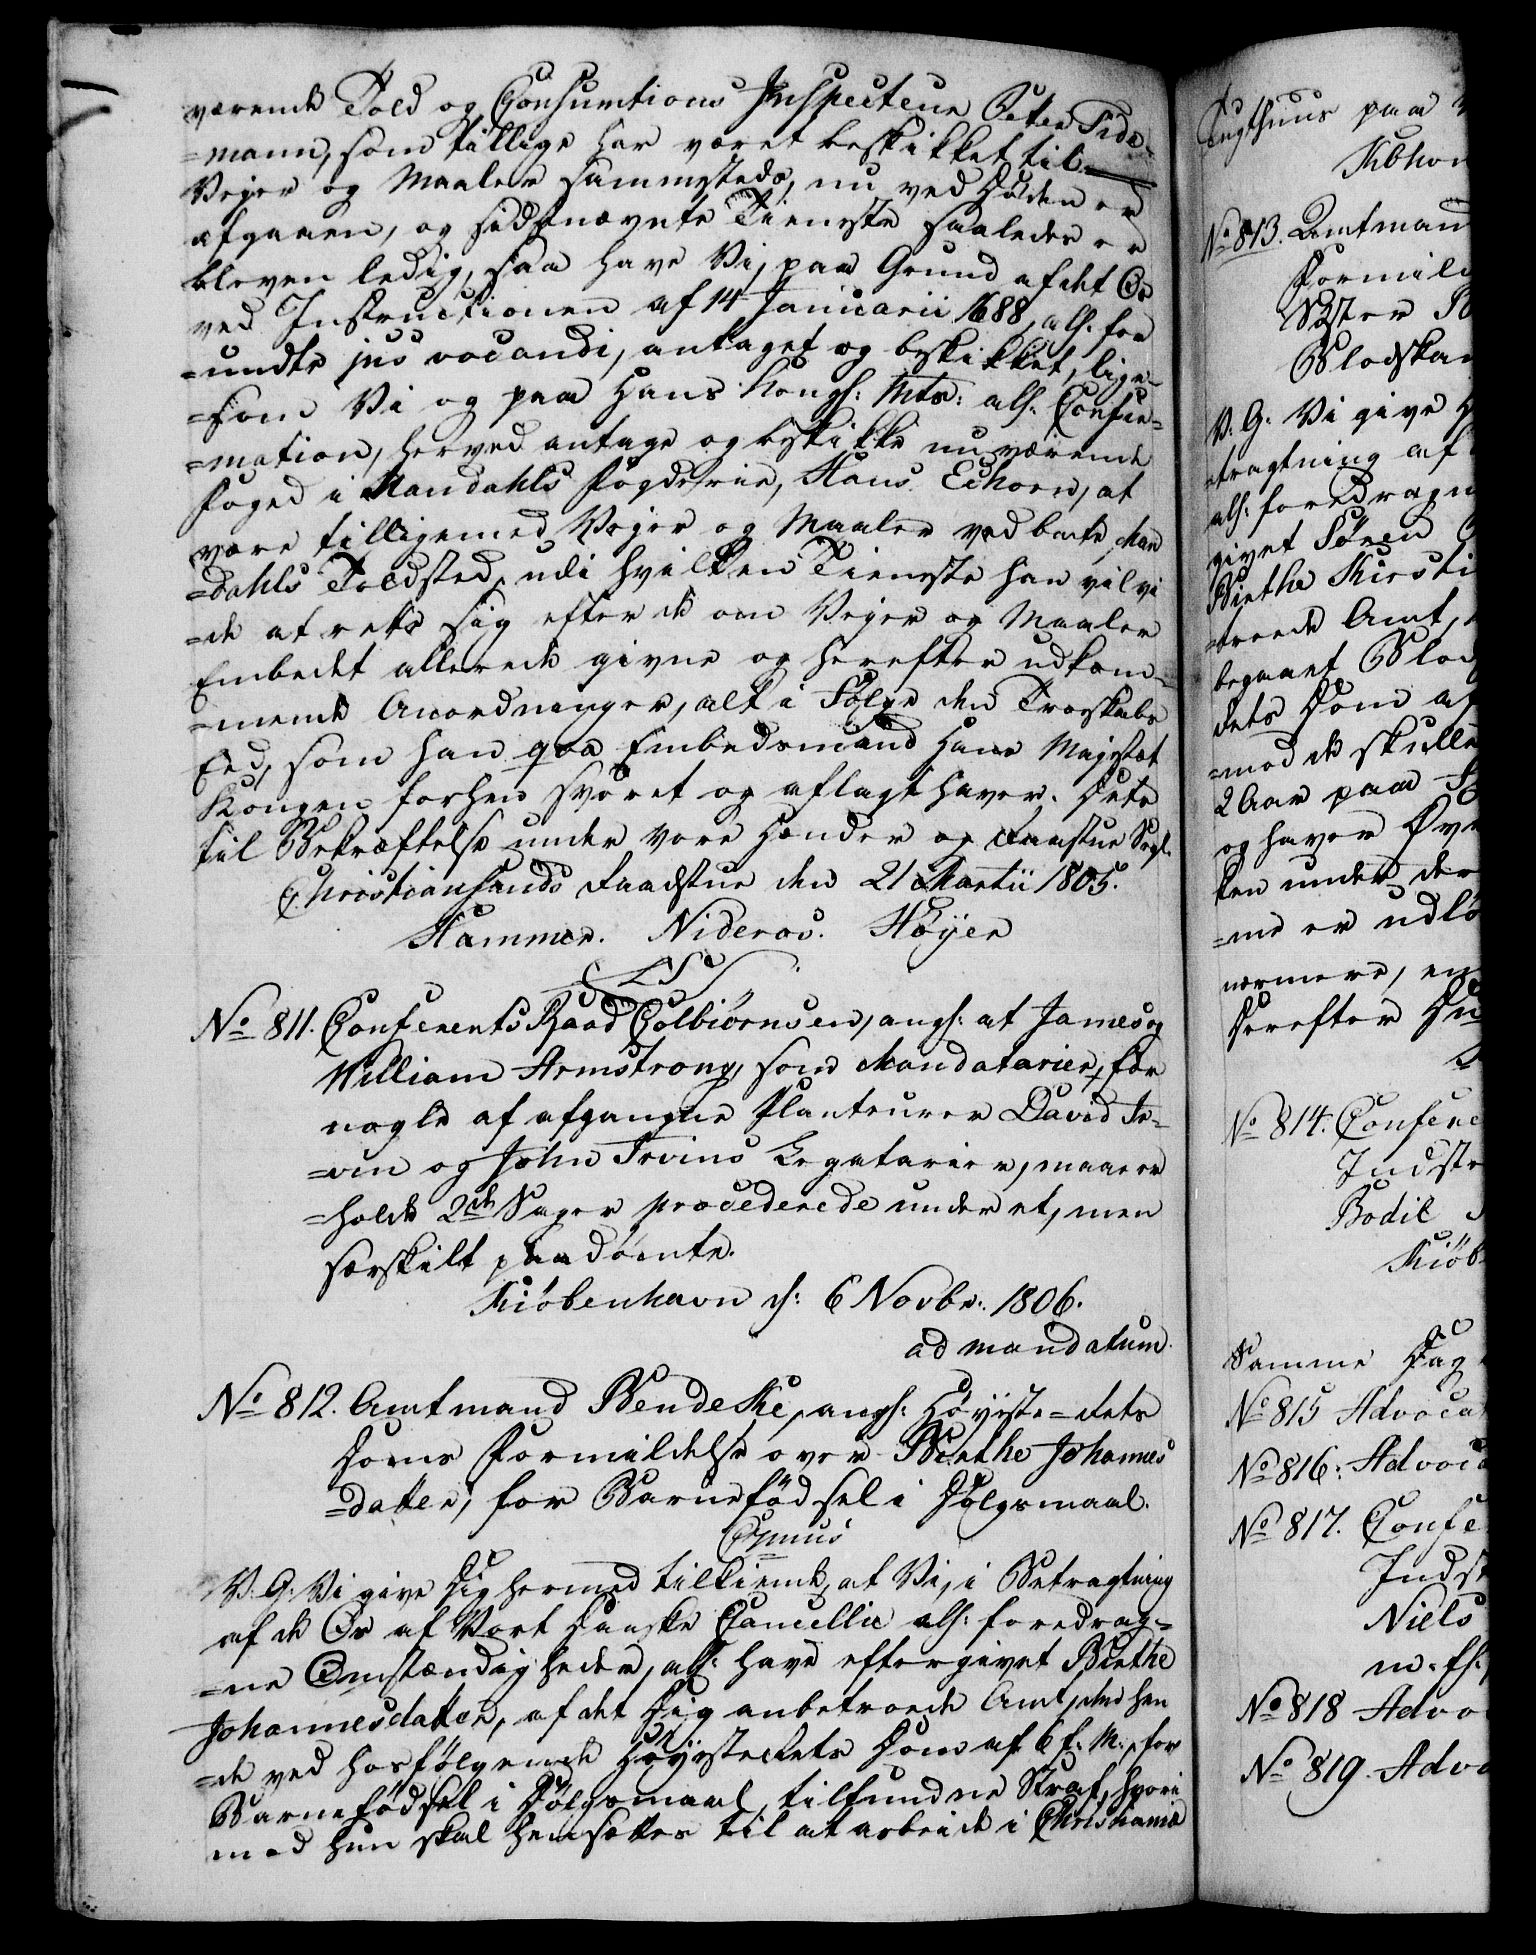 værende Told og Consumtions Inspecteur Peter Tide-
=mann, som tillige har været beskikket til
Vejer og Maaler sammesteds, nu ved Døden er
afgaaen, og sidstnævnte Tieneste saaledes er
bleven ledig, saa have Vi, paa Grund af det Os
ved Instructionen af 14 Januarii 1688, als. for
=undte jus vocandi, antaget og beskikket, lige-
=som Vi og paa Hans Kongl: Mts: als. Confir-
=mation, herved antage og beskikke nuværende
Foged i Mandahls Fogderie, Hans Eckorn, at
være tilligemed Vejer og Maaler ved bente Man
=dahls Toldsted, udi hvilken Tieneste han vil vi
=de at rette sig efter de om Vejer og Maaler
Embedet allerede givne og herefter udkom-
=mende Anordninger, alt i Følge den Troskabs
Eed, som han qva Embedsmand Hans Majestæt
Kongen forhen svoret og aflagt haver. Dette
til Bekræftelse under vore Hænder og Raadstue Segl.
Christiansands Raadstue den 21 Martii 1805.
Hammer. Nideros. Høyer
(LS)
No 811. Conferents Raad Colbiørnsen, angl: at James og
William Armstrong, som Mandatarier, for
nogle af afgangne Planteurer David Ir-
=vin og John Irvins Legatarier, maa er
=holde 2de Sager procederede under et, men
særskilt paadømte.
Kiöbenhavn d: 6 Novbr: 1806.
ad mandatum.
No 812. Amtmand Bendeke, angl: Høyeste=Rets
Doms Formildelse over Birthe Johannes
=datter, for Barnefødsel i Dølgsmaal.
V. G. Vi give Dig hermed tilkiende, at Vi, i Betragtning
af de Os af Vort Danske Cancellie als: foredrag-
=ne Omstændigheder, als: have eftergivet Birthe
Johannesdatter, af det Dig anbetroede Amt, den hen
=de ved hosfølgende Høyesterets Dom af 6 f. M., for
Barnefødsel i Dølgsmaal, tilfundne Straf, hvori
mod hun skal hensættes til at arbeide i Christiania
Tugthuus paa
Kbhvn
No 813. Amtmand
Formild
Søster
Blodskam
V. G. Vi give
=tragtning af
als: foredragne
givet Sören
Birthe Kirsti
=troede Amt,
begaaet Blod
Rets Dom af
=mod de skulle
2 Aar paa
og haver
ken under der
=me er udlö
nærmere, en
Derefter Du
No 814. Confere
Indst
Bodil
Kiöb
Samme Dag
No 815 Advocat
No 816: Advoca
No 817. Confe
Indst
Niels
No 818 Advo
No 819. Advo